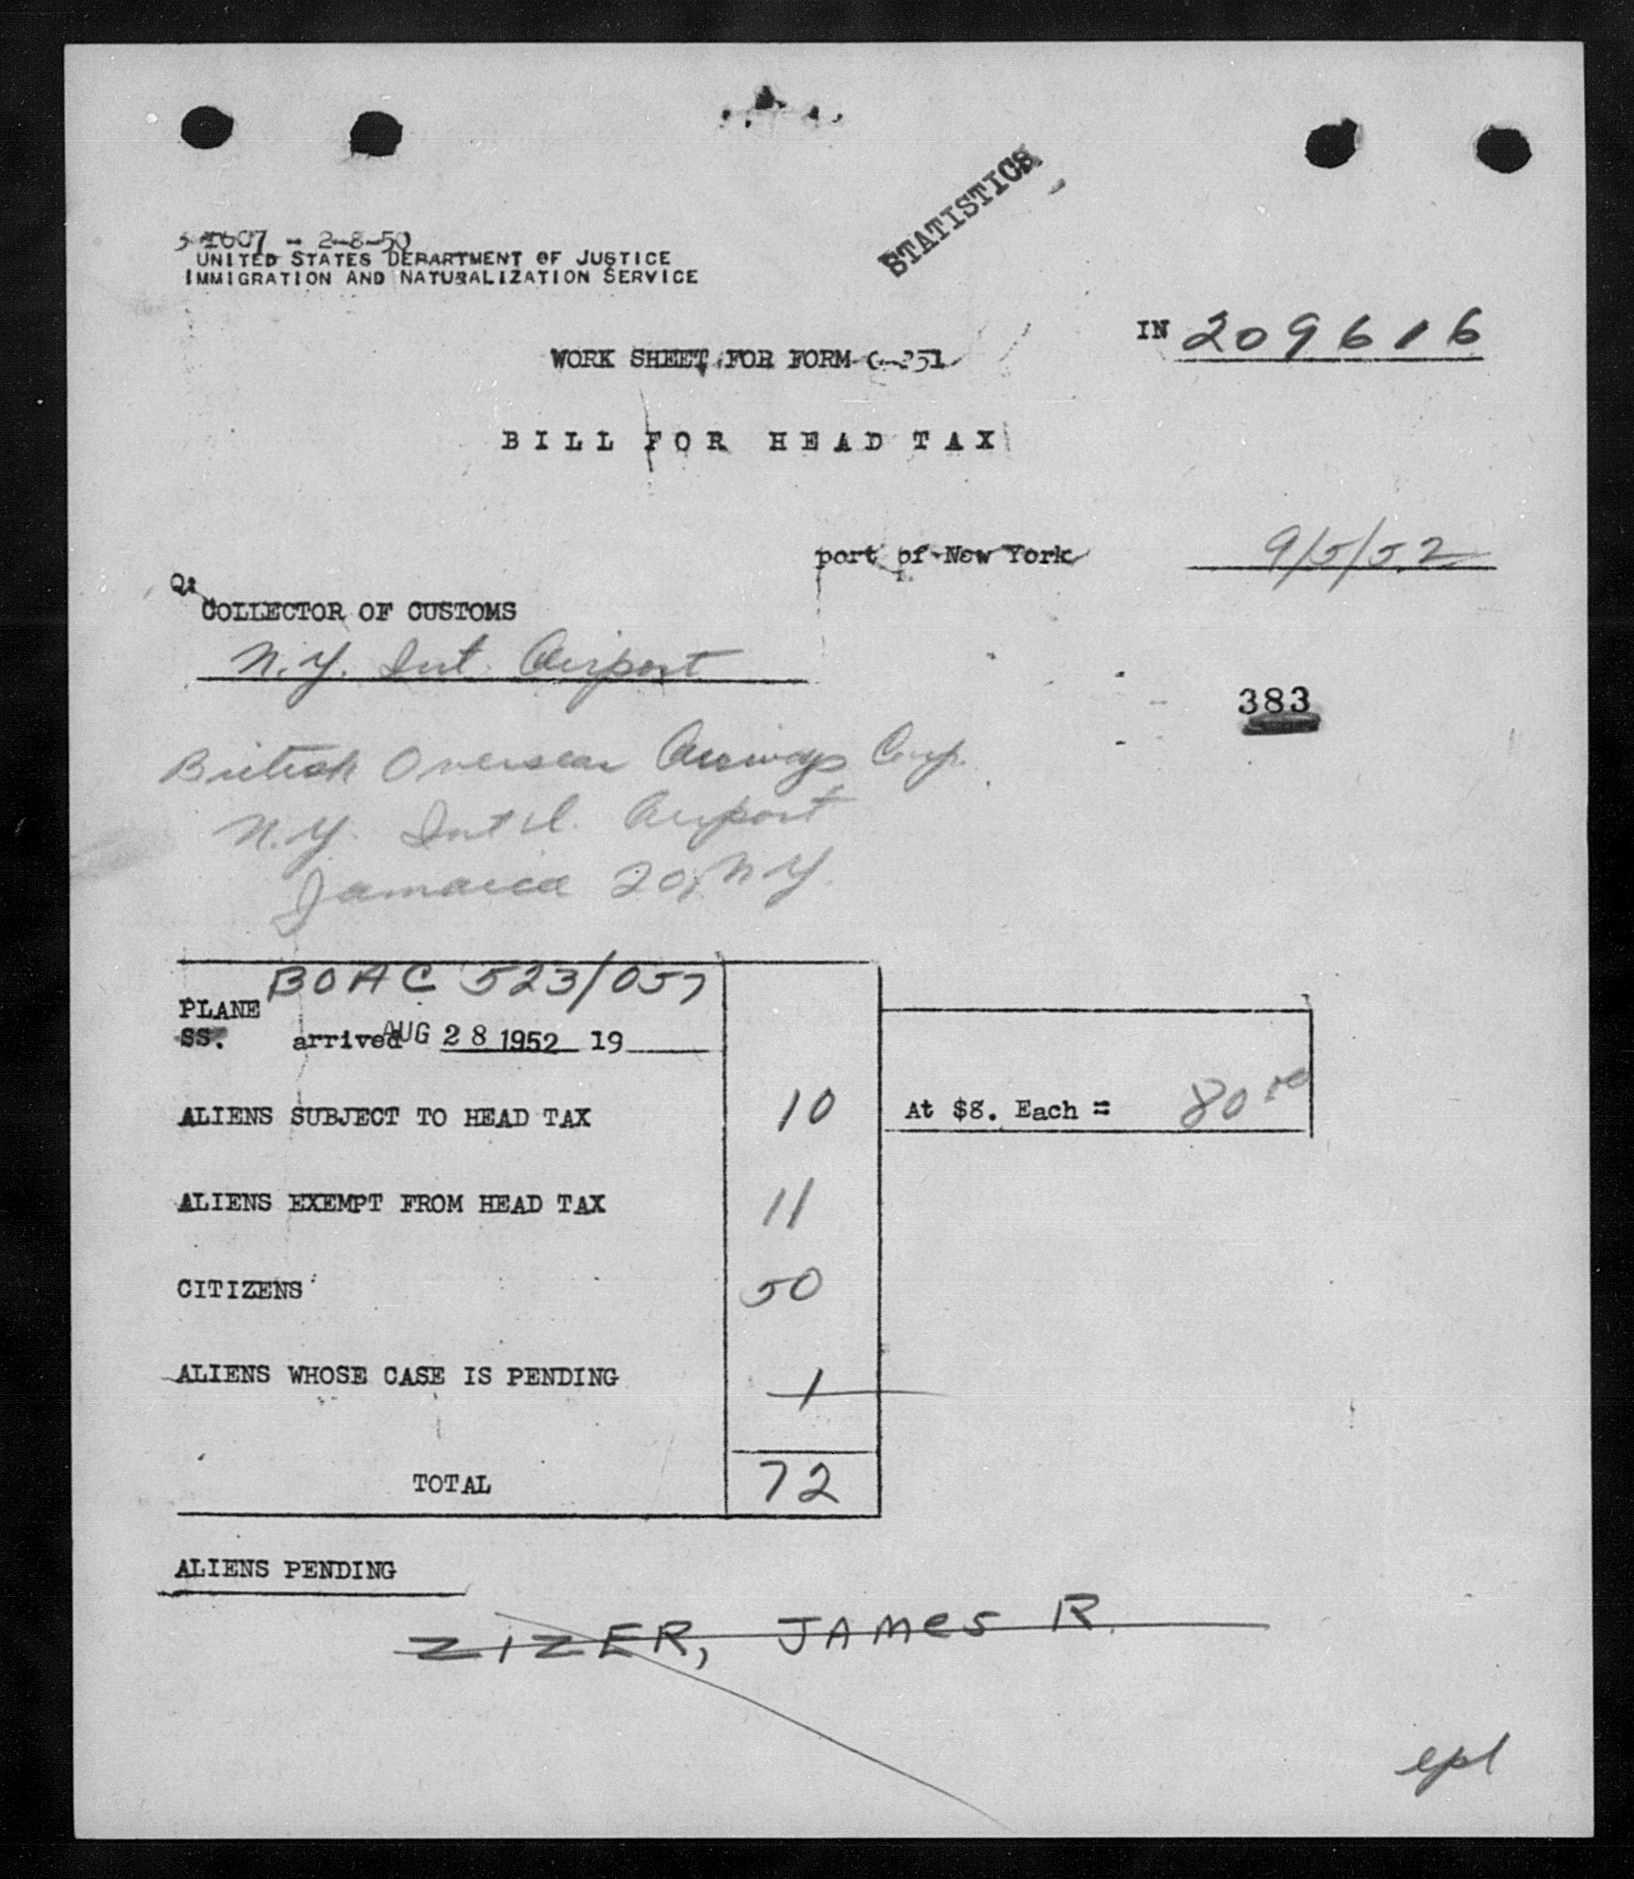 STATISTICS
1607 - 2-8-50
UNITED STATES DEPARTMENT OF JUSTICE
IMMIGRATION AND NATURALIZATION SERVICE
IN 209616
WORK SHEET FOR FORM G-251
BILL FOR HEAD TAX
port of New York 9/5/52
COLLECTOR OF CUSTOMS
N.Y. Int. Airport
383
British Overseas Airways Corp.
N.Y. Int'l. Airport
Jamaica 20, N.Y.
BOAC 523/057
PLANE
SS. arrived AUG 28 1952 19
ALIENS SUBJECT TO HEAD TAX 10 At $8. Each = 80.00
ALIENS EXEMPT FROM HEAD TAX 11
CITIZENS 50
ALIENS WHOSE CASE IS PENDING 1
TOTAL 72
ALIENS PENDING
ZIZER, JAMES R.
epl